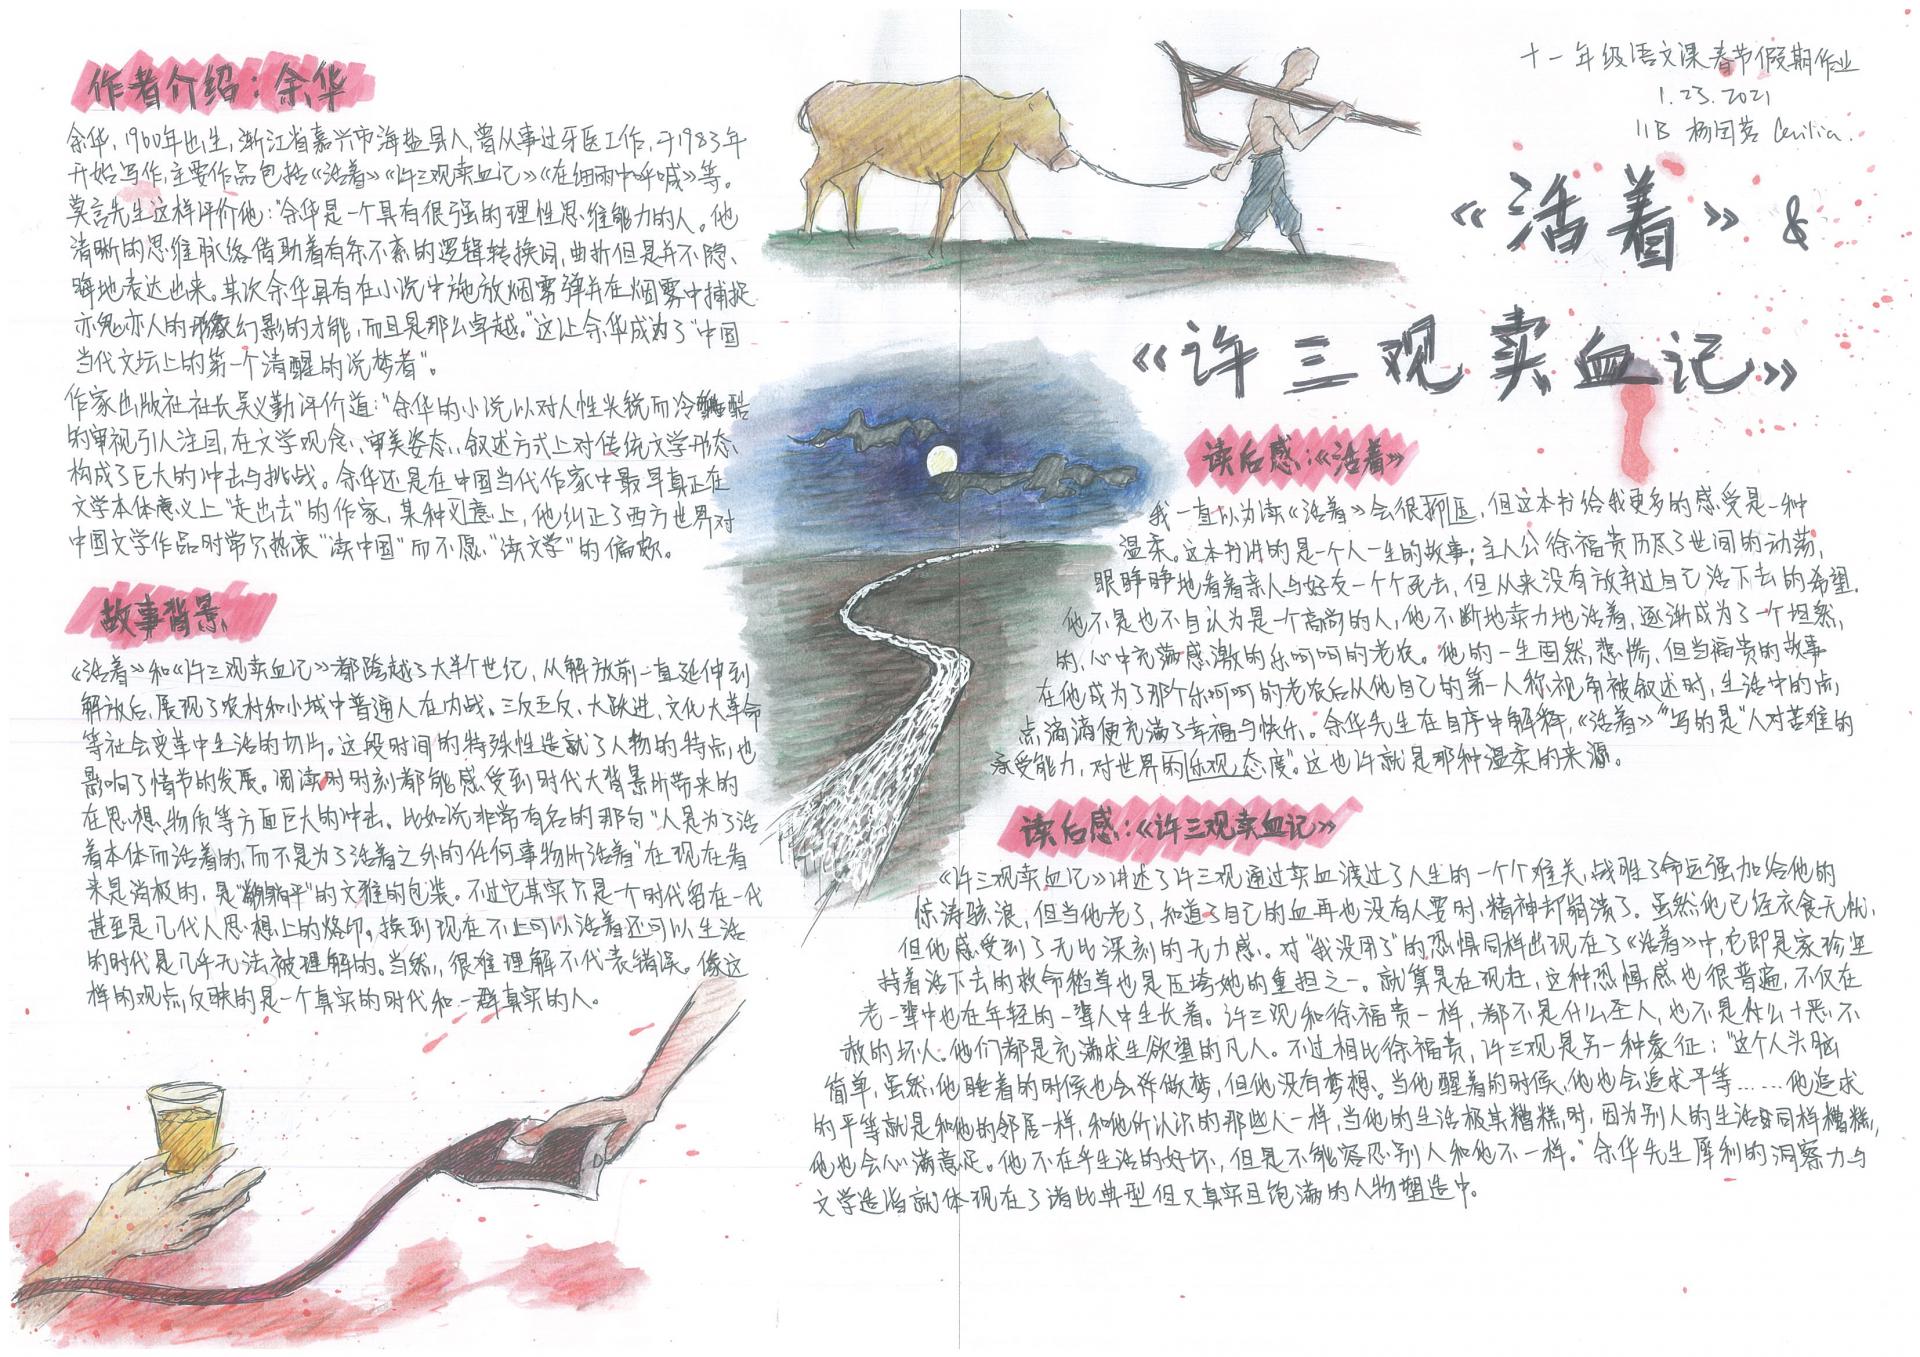 作者介绍：余华
余华，1960年出生，浙江省嘉兴市海盐县人，曾从事过牙医工作，于1983年
开始写作，主要作品包括《活着》《许三观卖血记》《在细雨中呼喊》等。
莫言先生这样评价他："余华是一个具有很强的理性思维能力的人。他
清晰的思维脉络借助着有条不紊的逻辑转换词，曲折但是并不隐
晦地表达出来。其次余华具有在小说中施放烟雾弹并在烟雾中捕捉
亦鬼亦人的幻影的才能，而且是那么卓越。"这让余华成为了"中国
当代文坛上的第一个清醒的说梦者"。
作家出版社社长吴义勤评价道："余华的小说以对人性尖锐而冷酷
的审视引人注目，在文学观念、审美姿态、叙述方式上对传统文学形态
构成了巨大的冲击与挑战。余华还是在中国当代作家中最早真正在
文学本体意义上"走出去"的作家，某种义意上，他纠正了西方世界对
中国文学作品时常只热衷"读中国"而不愿"读文学"的偏颇。
故事背景
《活着》和《许三观卖血记》都跨越了大半个世纪，从解放前一直延伸到
解放后，展现了农村和小城中普通人在内战。三反五反、大跃进、文化大革命
等社会变革中生活的切片。这段时间的特殊性造就了人物的特点，也
影响了情节的发展。阅读时时刻都能感受到时代大背景所带来的
在思想、物质等方面巨大的冲击。比如说非常有名的那句"人是为了活
着本体而活着的，而不是为了活着之外的任何事物所活着"在现在看
来是消极的，是"躺平"的文雅的包装。不过它其实只是一个时代留在一代
甚至是几代人思想上的烙印。换到现在不止可以活着还可以生活
的时代是几乎无法被理解的。当然，很难理解不代表错误。像这
样的观点反映的是一个真实的时代和一群真实的人。
十一年级语文课春节假期作业
1.23.2021
11B 杨 Cecilia.
《活着》&
《许三观卖血记》
读后感：《活着》
我一直以为读《活着》会很，但这本书给我更多的感受是一种
温柔。这本书讲的是一个人一生的故事；主人公徐福贵历尽了世间的动荡，
眼睁睁地看着亲人与好友一个个死去，但从来没有放弃过自己活下去的希望。
他不是也不自认为是一个高尚的人，他不断地卖力地活着，逐渐成为了一个坦然
的，心中充满感激的乐呵呵的老农。他的一生固然悲惨，但当福贵的故事
在他成为了那个乐呵呵的老农后从他自己的第一人称视角被叙述时，生活中的点
点滴滴便充满了幸福与快乐。余华先生在自序中解释，《活着》"写的是"人对苦难的
承受能力，对世界的乐观态度"。这也许就是那种温柔的来源。
读后感：《许三观卖血记》
《许三观卖血记》讲述了许三观通过卖血渡过了人生的一个个难关，战胜了命运强加给他的
惊涛骇浪，但当他老了，知道了自己的血再也没有人要时，精神却崩溃了。虽然他已经衣食无忧，
但他感受到了无比深刻的无力感。对"我没用了"的恐惧同样出现在了《活着》中，它即是家珍坚
持着活下去的救命稻草也是压垮她的重担之一。就算是在现在，这种恐惧感也很普遍，不仅在
老一辈中也在年轻的一辈人中生长着。许三观和徐福贵一样，都不是什么圣人，也不是什么十恶不
赦的坏人。他们都是充满求生欲望的凡人。不过相比徐福贵，许三观是另一种象征："这个人头脑
简单，虽然他睡着的时候也会做梦，但他没有梦想。当他醒着的时候，他也会追求平等……他追求
的平等就是和他的邻居一样，和他所认识的那些人一样，当他的生活极其糟糕时，因为别人的生活同样糟糕，
他也会心满意足。他不在乎生活的好坏，但是不能容忍别人和他不一样。"余华先生犀利的洞察力与
文学造诣就体现在了诸此典型但又真实且饱满的人物塑造中。